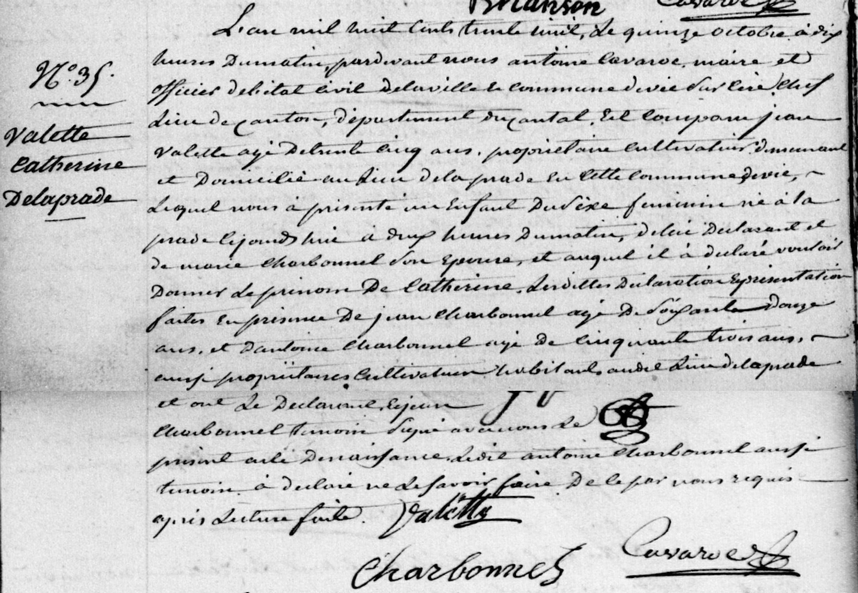 Brianson Cavaroc
L'an mil huit cents trente huit, Le quinze octobre à dix
heures Dumatin, pardevant nous antoine Cavaroc, maire et
officier de létat Civil Delaville & Commune devic Sur Cère Chef
Lieu de Canton, département du Cantal, Est Comparu jean
Valette agé De trente Cinq ans, propriétaire Cultivateur, demeurant
et Domicilié au Lieu de laprade En Cette Commune devic,
Lequel nous à présenté un Enfant Du Sexe féminin né à la
prade Cejourd'hui à deux heures Dumatin, de lui Déclarant et
de marie Charbonnel Son Epouse, et auquel il à déclaré vouloir
Donner Le prénom De Catherine, Lesdittes Déclaration & présentation
faites En présence De jean Charbonnel agé De Soixante Douze
ans, et D'antoine Charbonnel agé de Cinquante trois ans,
aussi propriétaires Cultivateurs habitants audit Lieu delaprade
et ont Le Déclarant, & jean
Charbonnel temoin Signé avec nous Le
présent acte De naissance, Ledit antoine Charbonnel aussi
temoin à déclaré ne Le Savoir faire De Ce par nous requis
après Lecture faite. Valette
Charbonnel Cavaroc
N.° 35.
Valette
Catherine
Delaprade